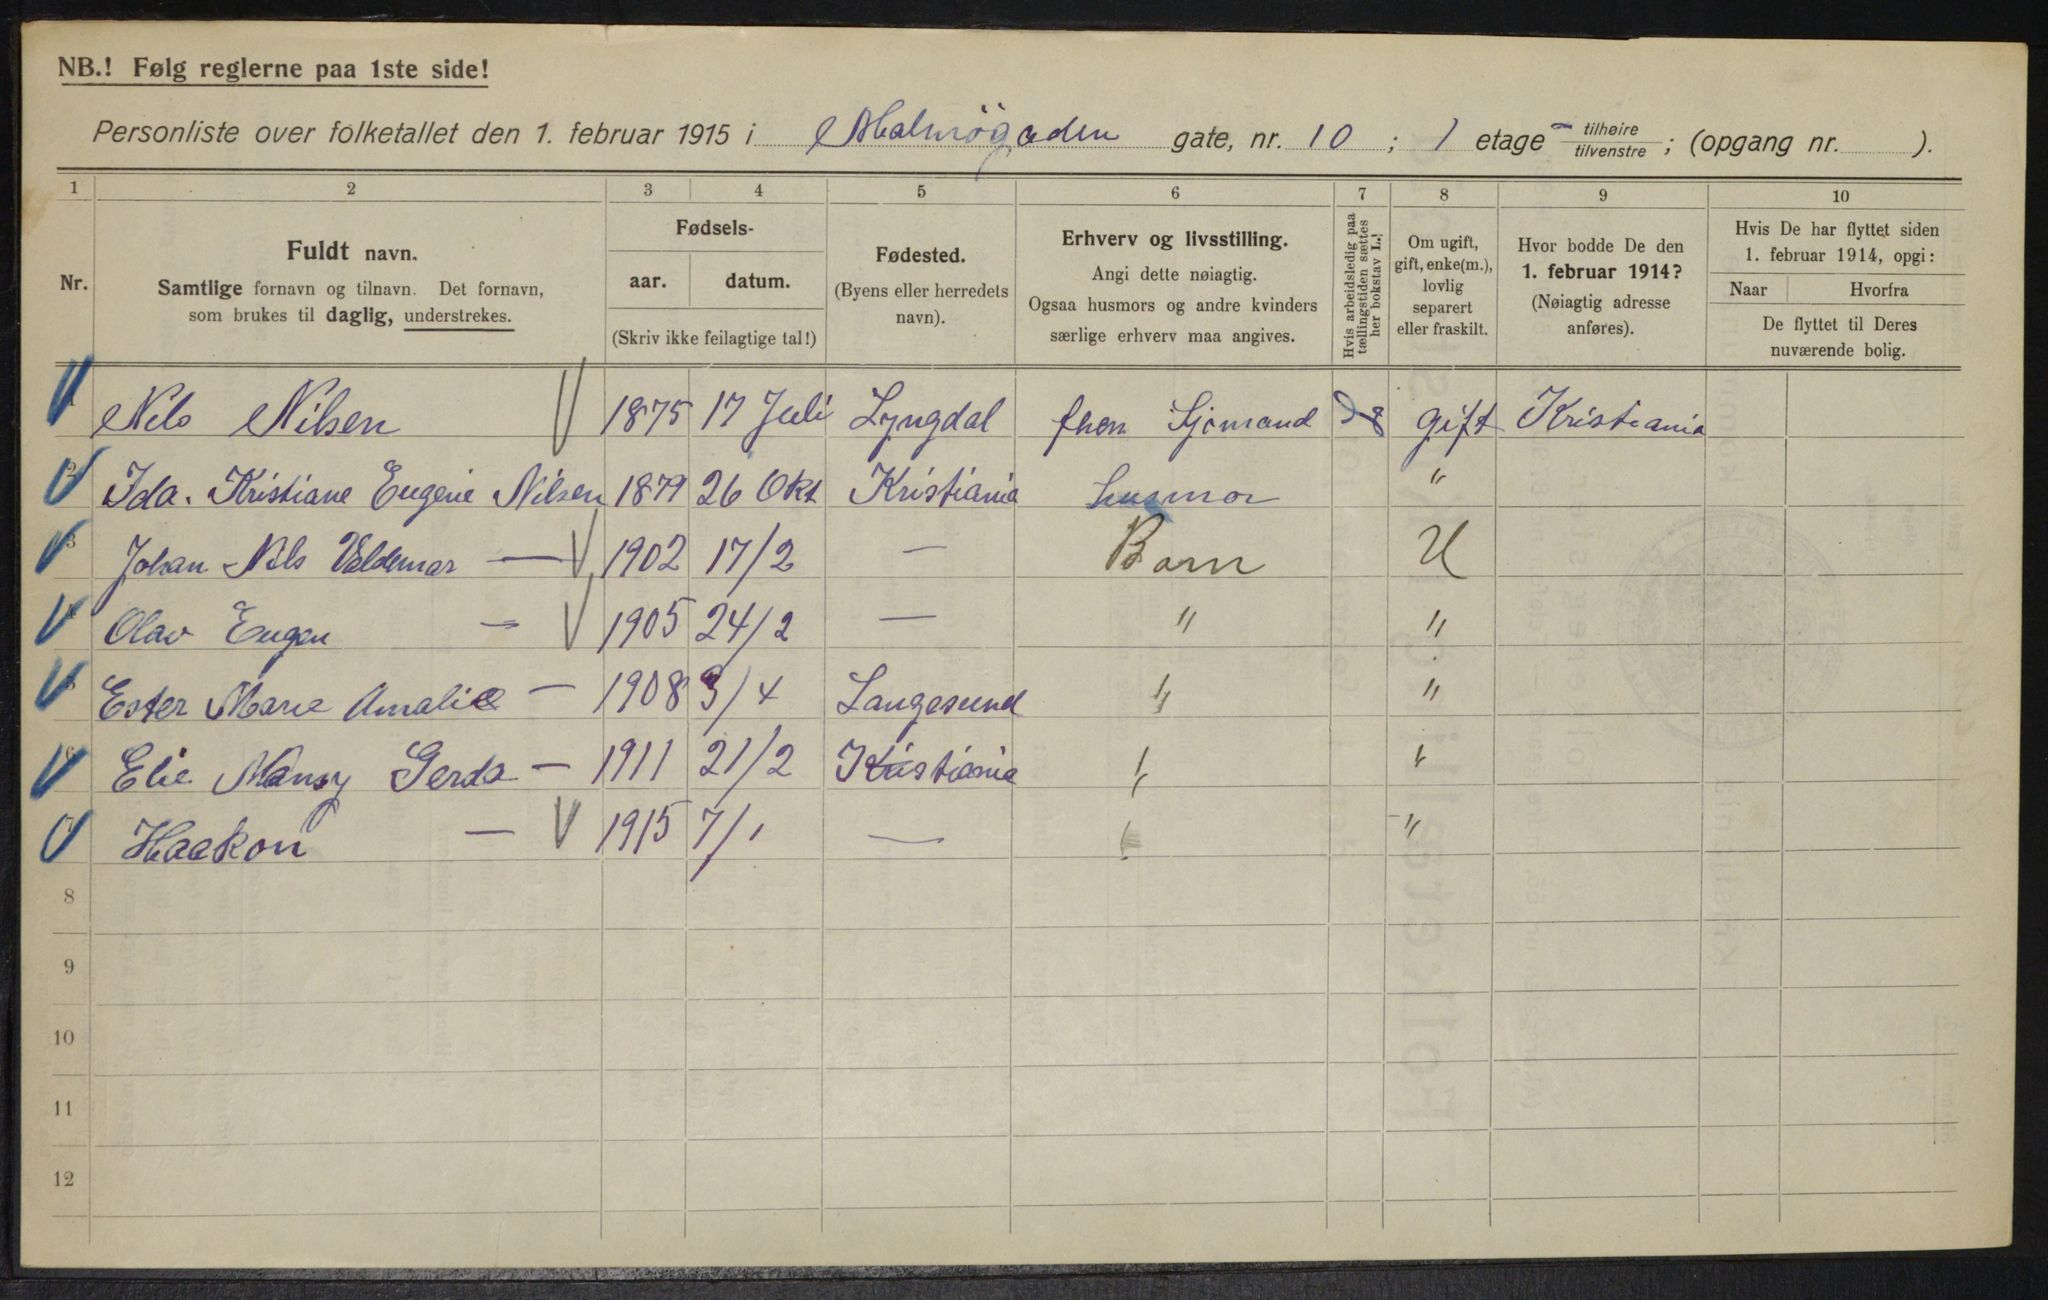 NB.! Følg reglerne paa 1ste side!
Personliste over folketallet den 1. februar 1915 i Malmøgaden gate, nr. 10 ; 1 etage tilhøire tilvenstre ; (opgang nr. ).
1 2 3 4 5 6 7 8 9 10
Nr.
Fuldt navn.
Samtlige fornavn og tilnavn. Det fornavn,
som brukes til daglig, understrekes.
Fødsels-
aar. datum.
(Skriv ikke feilagtige tal!)
Fødested.
(Byens eller herredets
navn).
Erhverv og livsstilling.
Angi dette nøiagtig.
Ogsaa husmors og andre kvinders
særlige erhverv maa angives.
Hvis arbeidsledig paa
tællingstiden sættes
her bokstav L.!
Om ugift,
gift, enke(m.),
lovlig
separert
eller fraskilt.
Hvor bodde De den
1. februar 1914?
(Nøiagtig adresse
anføres).
Hvis De har flyttet siden
1. februar 1914, opgi:
Naar Hvorfra
De flyttet til Deres
nuværende bolig.
1 Nils Nilsen 1875 17 Juli Lyngdal Sjømand gift Kristiania
2 Ida. Kristiane Eugenie Nilsen 1879 26 Okt Kristiania husmor "
3 Johan Nils Valdemar — 1902 17/2 — Barn U
4 Olav Eugen — 1905 24/2 — " "
5 Ester Marie Amalie — 1908 3/4 Langesund " "
6 Elie Nansy Gerda — 1911 21/2 Kristiania " "
7 Haakon — 1915 7/1 — " "
8
9
10
11
12